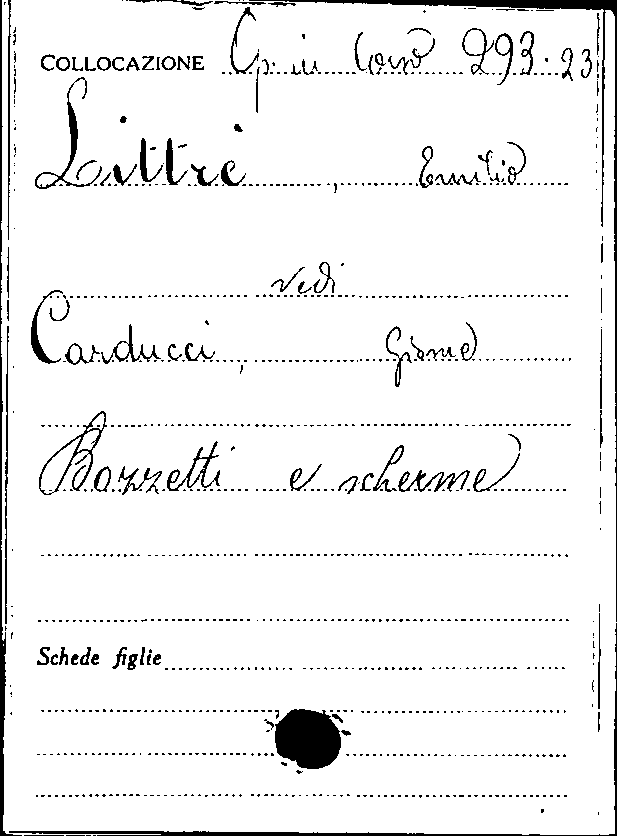 COLLOCAZIONE Op. in Corso 293.23
Littré, Emilio
Vedi
Carducci, Giosue
Bozzetti e scherme
Schede figlie